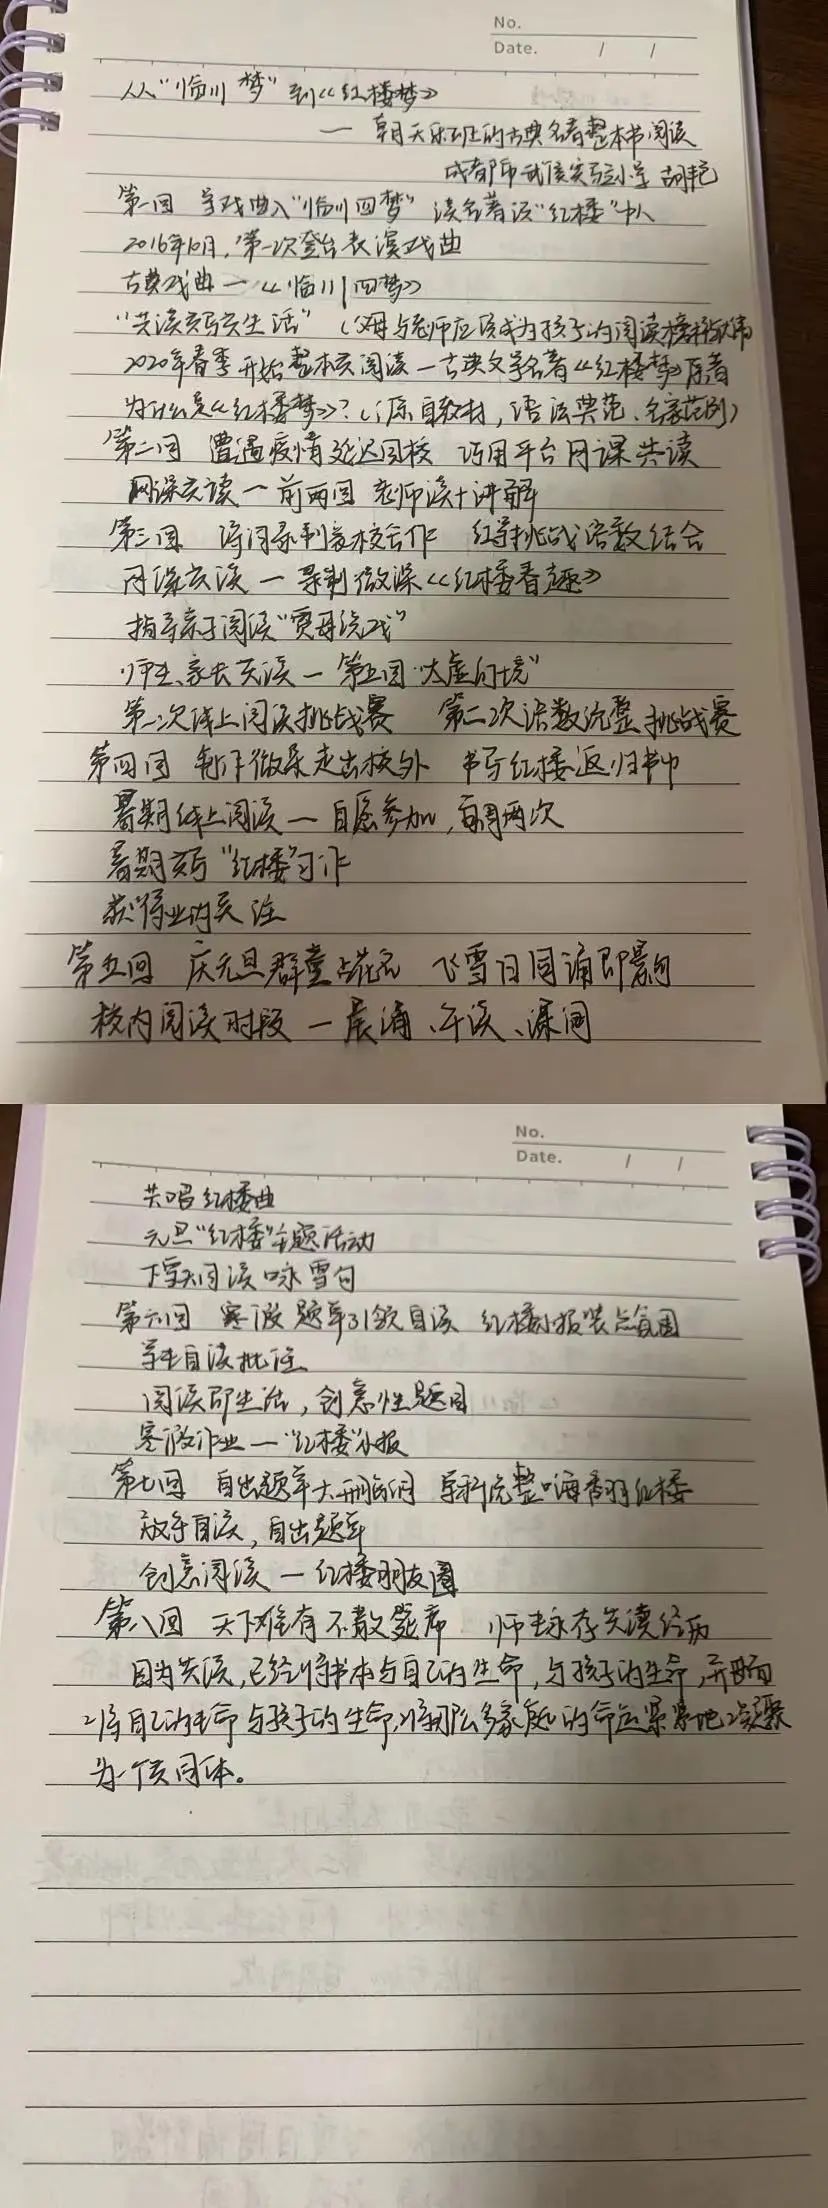 No.
Date. / /
从“临川梦”到《红楼梦》
— 朝天乐班的古典名著整本书阅读
成都市武侯实验小学 胡艳
第一回 学戏曲入“临川四梦” 读名著识“红楼”中人
2016年10月,第一次登台表演戏曲
古典戏曲—《临川四梦》
“共读共写共生活” (父母与老师应该成为孩子的阅读榜样
2020年春季开始整本共阅读—古典文学名著《红楼梦》原著
为什么是《红楼梦》?(源自教材,语法典范、名家范例)
第二回 遭遇疫情延迟回校 巧用平台网课共读
网课共读—前两回 老师读+讲解
第三回 录制家校合作 红学挑战语数结合
网课共读—录制微课《红楼看趣》
指导亲子阅读“贾母说戏”
师生、家长共读—第五回“太虚幻境”
第一次线上阅读挑战赛 第二次语数完整挑战赛
第四回 制作微录走出校外 书写红楼返归书中
暑期线上阅读—自愿参加,每周两次
暑期共写“红楼”习作
获得业内关注
第五回 庆元旦群童占花名 飞雪日同诵即景句
校内阅读时段—晨诵、午读、课间
No.
Date. / /
共唱红楼曲
元旦“红楼”主题活动
下雪天同读咏雪句
第六回 寒假题单引领自读 红楼小报装点氛围
学生自读批注
阅读即生活,创意性题目
寒假作业—“红楼”小报
第七回 自出题单大闹 学科完整嗨翻红楼
放手自读,自出题单
创意阅读—红楼朋友圈
第八回 天下难有不散筵席 师生永存共读经历
因为共读,已经将书本与自己的生命,与孩子的生命,并且
将自己的生命与孩子的生命,将那么多家庭的命运紧紧地凝聚
为一个共同体。